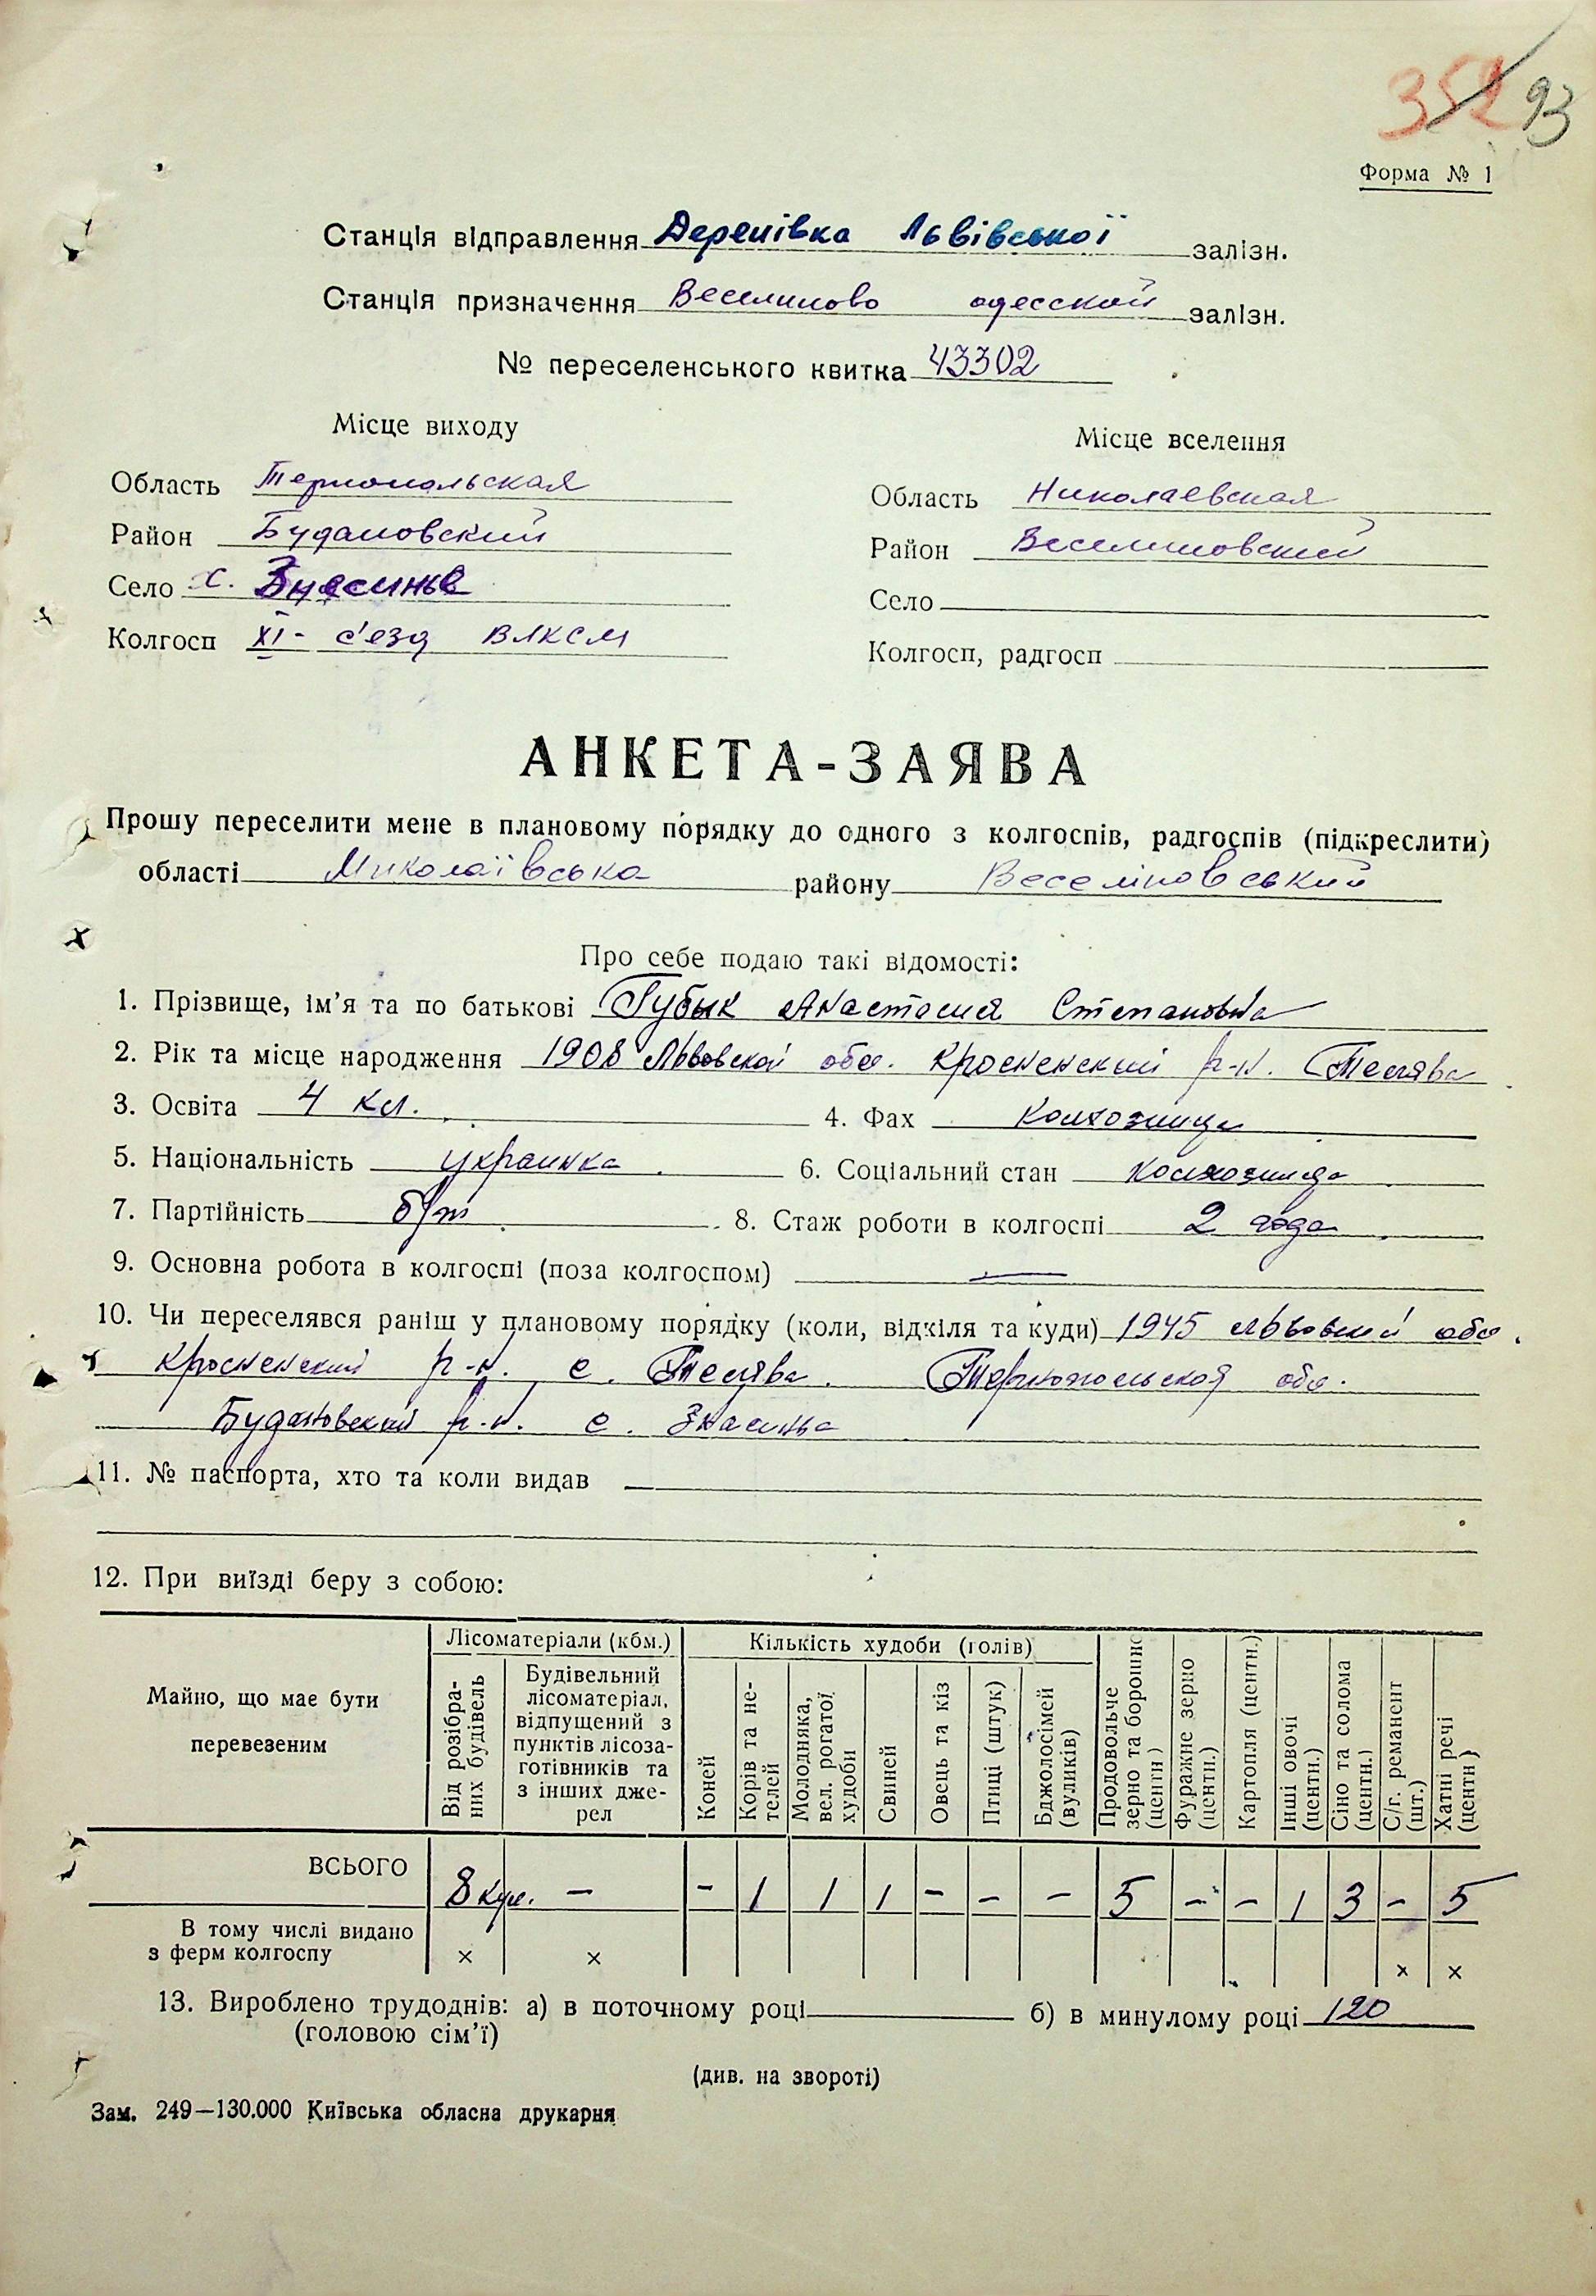 352 93
Форма № 1
Станція відправлення Деренівка Львівської залізн.
Станція призначення Веселиново одесской залізн.
№ переселенського квитка 43302
Місце виходу
Область Тернопольская
Район Будановский
Село х.
Колгосп XI- с'езд ВЛКСМ
Місце вселення
Область Николаевская
Район Веселиновский
Село
Колгосп, радгосп
АНКЕТА-ЗАЯВА
Прошу переселити мене в плановому порядку до одного з колгоспів, радгоспів (підкреслити)
області Миколаївська району Веселіновський
Про себе подаю такі відомості:
1. Прізвище, ім'я та по батькові Губык Анастасия Степановна
2. Рік та місце народження 1908 Львовской обл. Кросненский р-н.
3. Освіта 4 кл. 4. Фах Колхозница
5. Національність украинка 6. Соціальний стан колхозница
7. Партійність б/п 8. Стаж роботи в колгоспі 2 года
9. Основна робота в колгоспі (поза колгоспом) —
10. Чи переселявся раніш у плановому порядку (коли, відкіля та куди) 1945 Львовский обл.
Кросненский р-н. с. Тернопольская обл.
Будановский р-н. с.
11. № паспорта, хто та коли видав
12. При виїзді беру з собою:
Майно, що має бути перевезеним
Лісоматеріали (кбм.)
Від розібраних будівель
Будівельний лісоматеріал, відпущений з пунктів лісозаготівників та з інших джерел
Кількість худоби (голів)
Коней
Корів та нетелей
Молодняка, вел. рогатої худоби
Свиней
Овець та кіз
Птиці (штук)
Бджолосімей (вуликів)
Продовольче зерно та борошно (центн)
Фуражне зерно (центн.)
Картопля (центн.)
Інші овочі (центн.)
Сіно та солома (центн.)
С/г. реманент (шт.)
Хатні речі (центн)
ВСЬОГО 8 кум. – – 1 1 1 – – – 5 – – 1 3 – 5
В тому числі видано з ферм колгоспу × × × ×
13. Вироблено трудоднів: а) в поточному році б) в минулому році 120
(головою сім'ї)
(див. на звороті)
Зам. 249—130.000 Київська обласна друкарня